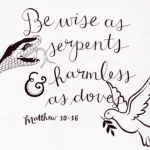 Be wise as
serpents
& harmless
as doves
Matthew 10:16